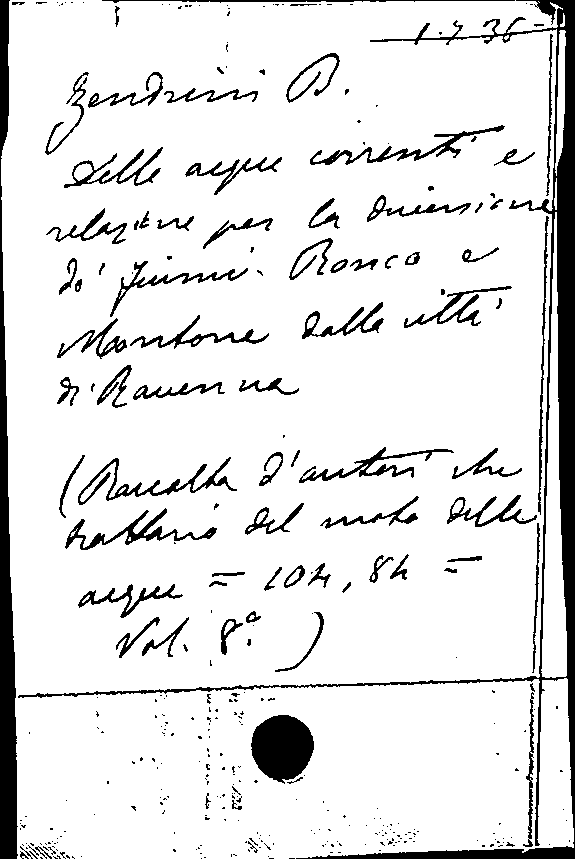 1.7.36
Zendrini B.
Delle acque correnti e
relazione per la diversione
de' fiumi Ronco e
Montone dalla città
di Ravenna
(Raccolta d'autori che
trattano del moto delle
acque = 104, 84 =
Vol. 8º.)